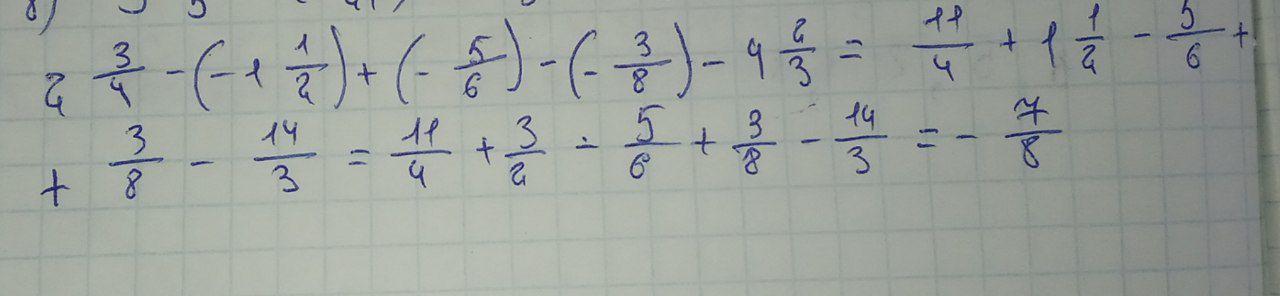 8)
2 3/4 - (-1 1/2) + (- 5/6) - (- 3/8) - 4 2/3 = 11/4 + 1 1/2 - 5/6 +
+ 3/8 - 14/3 = 11/4 + 3/2 - 5/6 + 3/8 - 14/3 = - 7/8